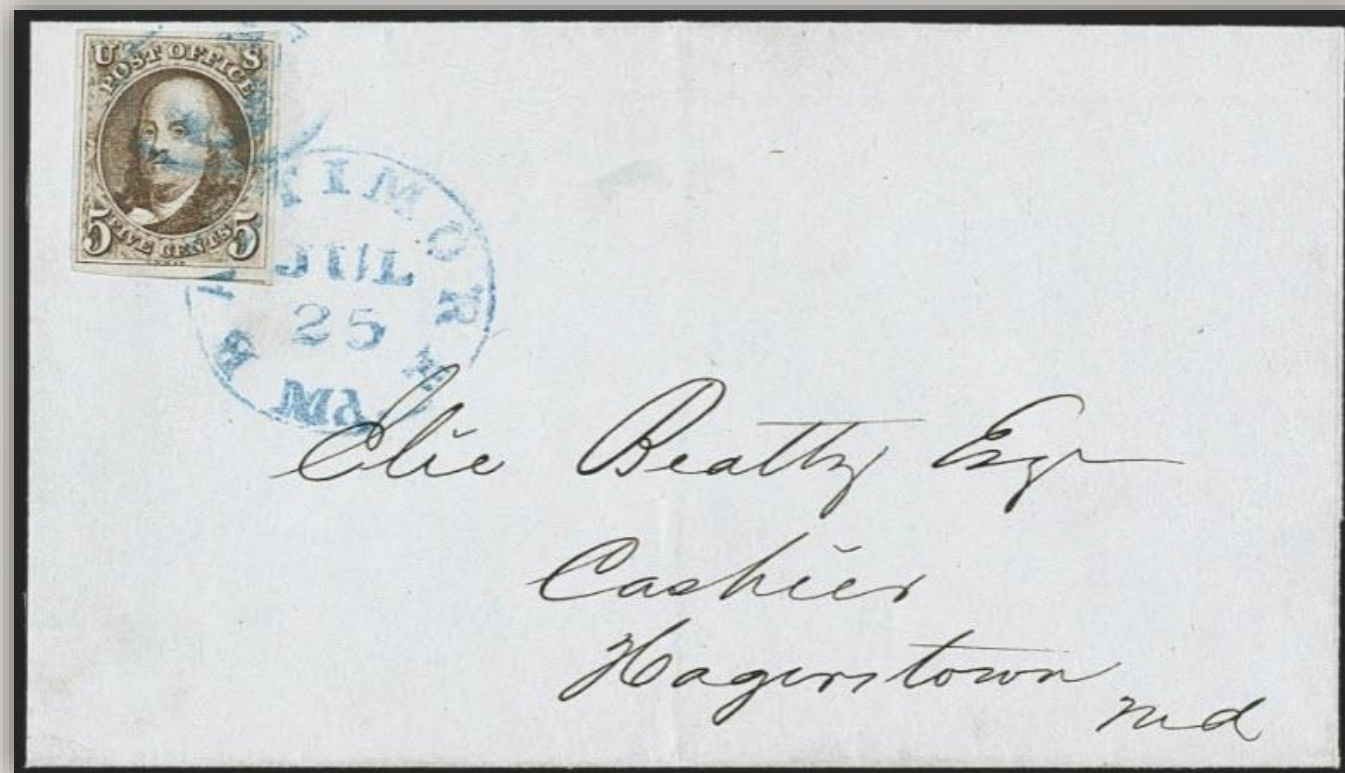 U S
POST OFFICE
5 FIVE CENTS 5
JUL
25
Md.
Elie Beatty Esqr
Cashier
Hagerstown
Md